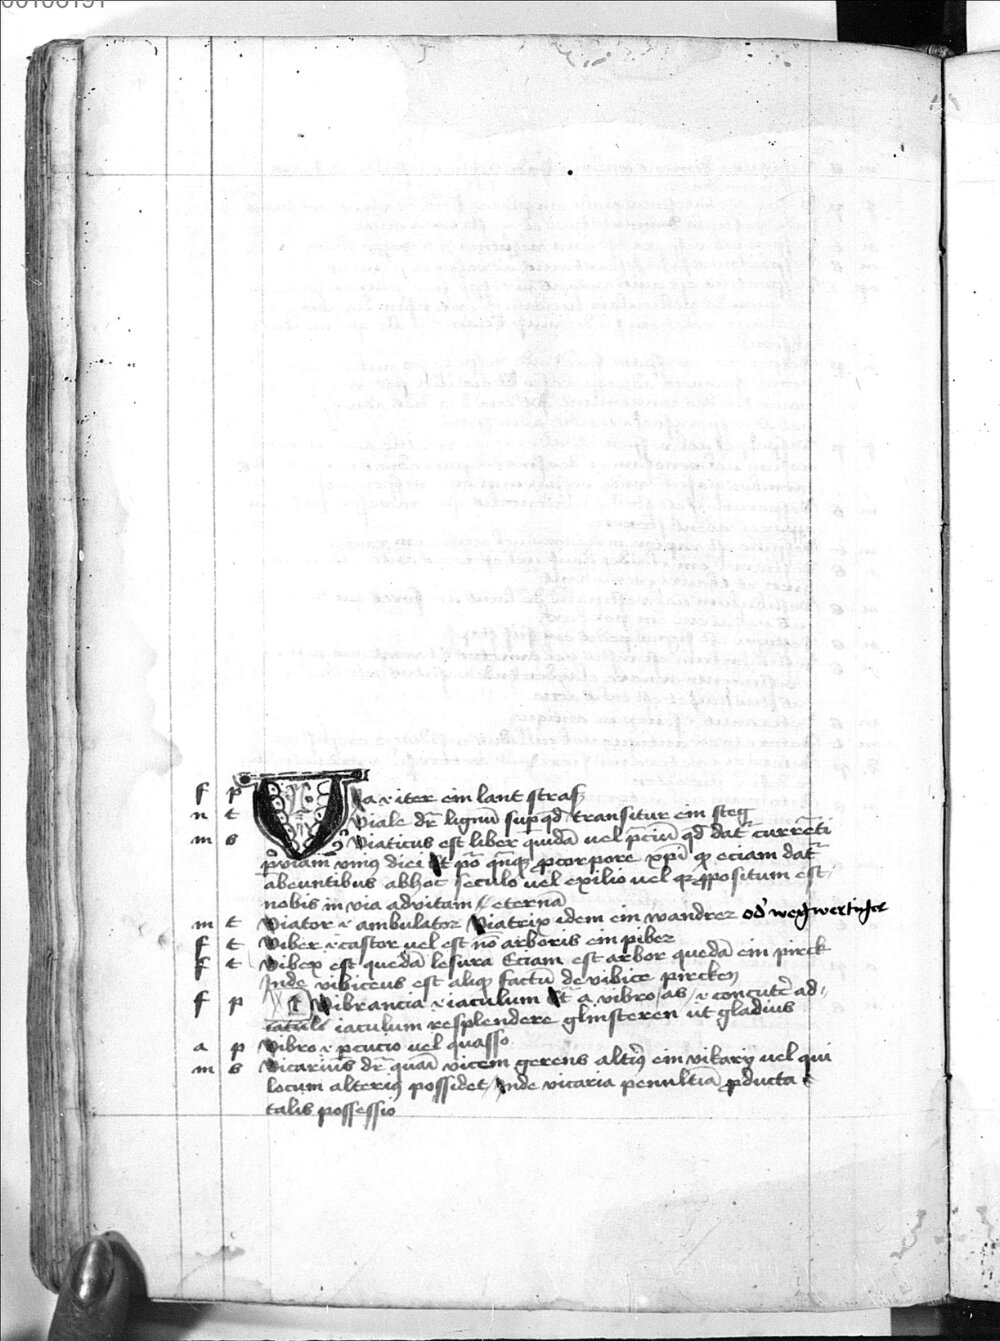 00106191
f p Via i iter ein lant straſz
n t Viale dr̄ lignū sup qd transitur ein steg
m s Viaticus est liber quidā vel p̄ciū qd dat᷑ currēti
ꝓ viam vniꝰ diei Et ꝓ corpore xp̄i eciam dat᷑
abeuntibus ab hoc seculo vel exilio vel ꝓpositum est
nobis in via ad vitam eternā
m t Viator i ambulator Viatrix idem ein wandrer od̄
f t Viber i castor vel est nō arboris ein piber
f t Vibex est quedā lesura Eciam est arbor quedā ein pirck
Inde vibiceus est aliqͥ factū de vibice pircken
f p Vibrancia i iaculum Et a vibro as i concute᷑ ad
iaculum resplendere glinsteren ut gladius
a p Vibro i ꝑcucio vel quasso
m s Vicarius dr̄ quasi vicem gerens altīꝰ ein vikary vel qui
locum alteriꝰ possidet Inde vicaria penultīa ꝓducta
talis possessio